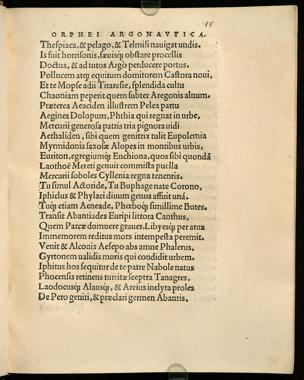 15
ORPHEI ARGONAVTICA.
Thespiaca, & pelago, & Telmisi nauigat undis.
Is fuit horrisonis, sæuisq; obstare procellis
Doctus, & ad tutos Argo perducere portus.
Pollucem atq; equitum domitorem Castora noui,
Et te Mopse adii Titarese, splendida cultu
Chaoniam peperit quem subter Aregonis alnum.
Præterea Aeaciden illustrem Pelea partu
Aegines Dolopum, Phthia qui regnat in urbe,
Mercurii generosa patris tria pignora uidi
Aethaliden, sibi quem genitrix tulit Eupolemia
Myrmidonis saxosæ Alopes in montibus urbis,
Euriton, egregiumq; Enchiona, quos sibi quondã
Laothoë Mereti genuit commista puella
Mercurii soboles Cyllenia regna tenentis.
Tu simul Actoride, Tu Buphage nate Corono,
Iphiclus & Phylaci diuum genus affuit unà.
Tuq; etiam Aeneade, Phoeboq; simillime Butes.
Transit Abantiades Euripi littora Canthus,
Quem Parcæ domuere graues. Libyesq; per arua
Immemorem reditus mors intempesta peremit.
Venit & Alconis Aesepo abs amne Phalerus,
Gyrtonem ualidis muris qui condidit urbem.
Iphitus hos sequitur de te patre Nabole natus
Phocensis retinens turritæ sceptra Tanagres.
Laodocusq; Alausq;, & Areius inclyta proles
De Pero geniti, & præclari germen Abantis,